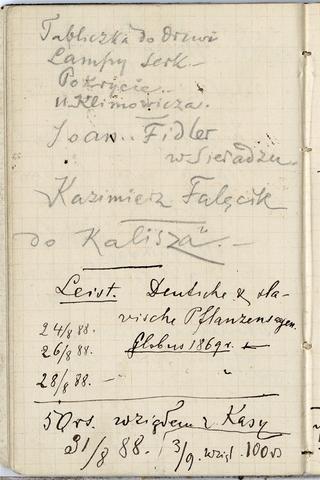 Tabliczka do Drzwi
Lampy serk.—
Pokrycie..
u Klimowicza.
Joan.. Fidler
w Sieradzu.
Kazimierz Falęcik
do Kalisza". —
Leist. Deutsche & sla-
vische Pflanzensagen.
24/8 88.
26/8 88. Globus 1869 r.
28/8 88. — "
50 rs. wziąłem z Kasy
31/8 88. 3/9. wziął. 100 rs